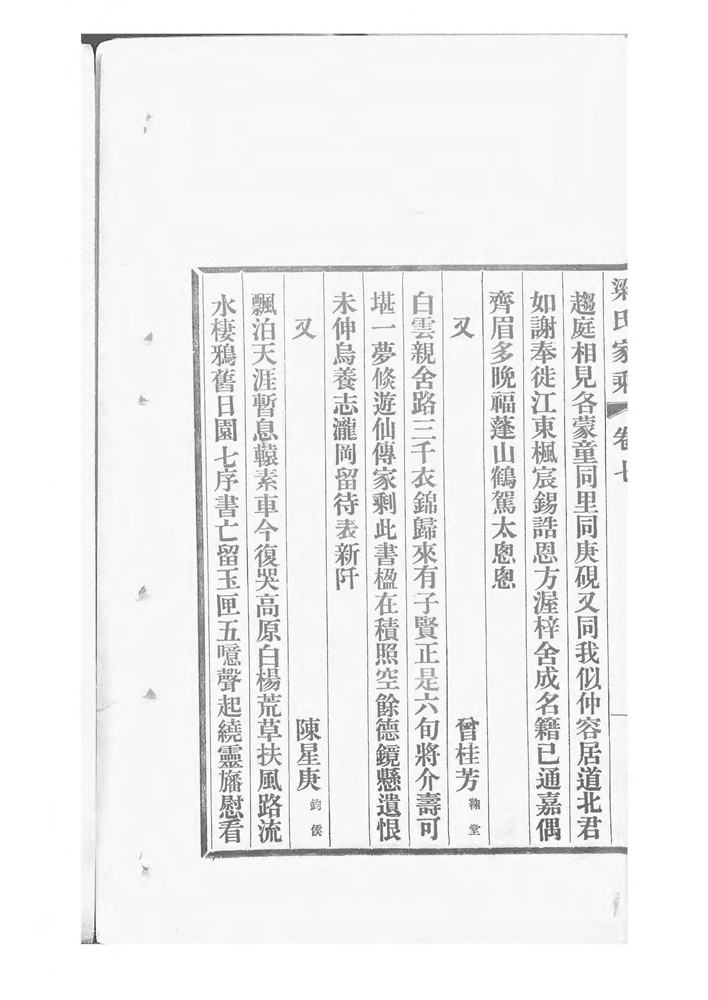 梁氏家剩 卷七
趨庭相見各蒙童同里同庚硯又同我似仲容居道北君
如謝奉徙江東楓宸錫誥恩方渥梓舍成名籍已通嘉偶
齊眉多晚福蓬山鶴駕太悤悤
又 曾桂芳 鞠堂
白雲親舍路三千衣錦歸來有子賢正是六旬將介壽可
堪一夢倐遊仙傳家剩此書楹在積照空餘德鏡懸遺恨
未伸烏養志瀧岡留待表新阡
又 陳星庚 鈞侯
飄泊天涯暫息轅素車今復哭高原白楊荒草扶風路流
水棲鴉舊日園七序書亡留玉匣五噫聲起繞靈旛慰看